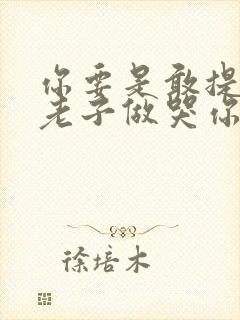 你要是敢提
老子做哭你
徐培木